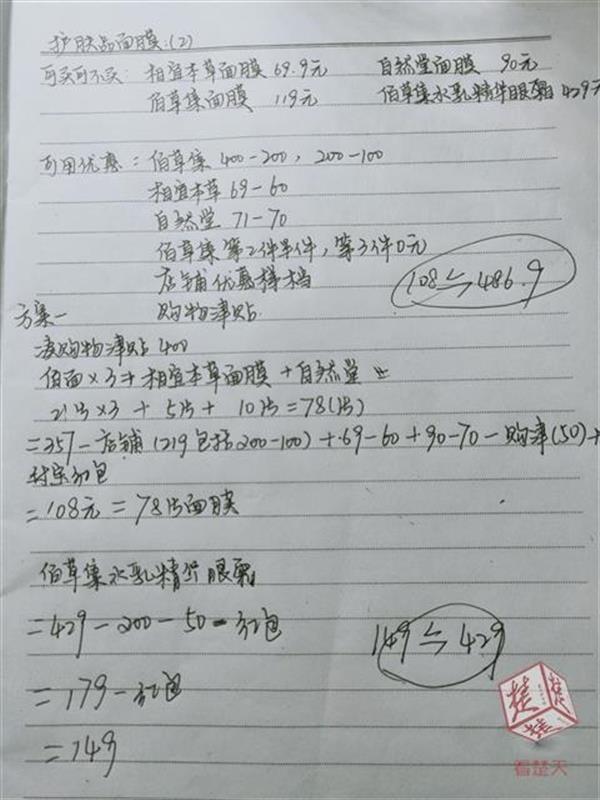 护肤品面膜:(2)
可买可不买: 相宜本草面膜 69.9元 自然堂面膜 90元
佰草集面膜 119元 佰草集水乳精华眼霜 429元
可用优惠: 佰草集 400-200, 200-100
相宜本草 69-60
自然堂 71-70
佰草集 第2件半件, 第3件0元
店铺优惠
108≒486.9
方案一 购物津贴
凑购物津贴 400
佰面×3+相宜本草面膜+自然堂
21片×3+5片+10片=78(片)
=357-店铺(219包括200-100)+69-60+90-70-购津(50)+
红包
=108元=78片面膜
佰草集水乳精华眼霜
=429-200-50-红包
149≒429
=179-红包
=149
楚楚楚
看楚天